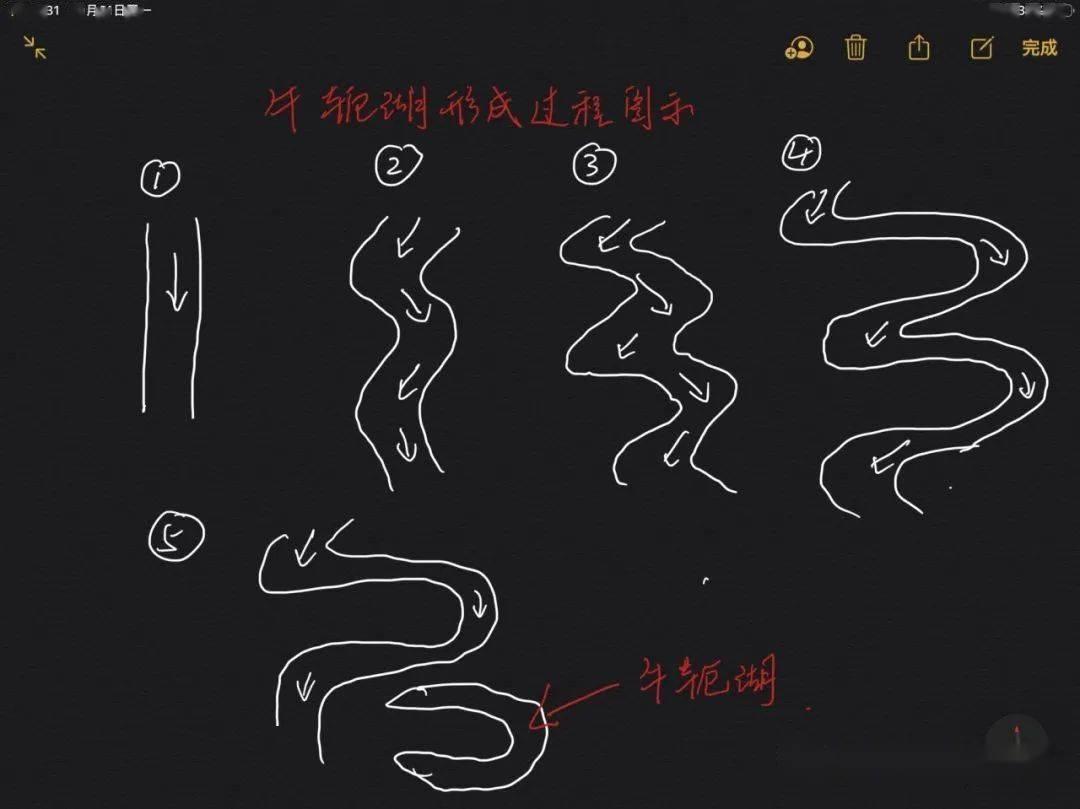 完成
牛轭湖形成过程图示
① ② ③ ④
⑤
牛轭湖